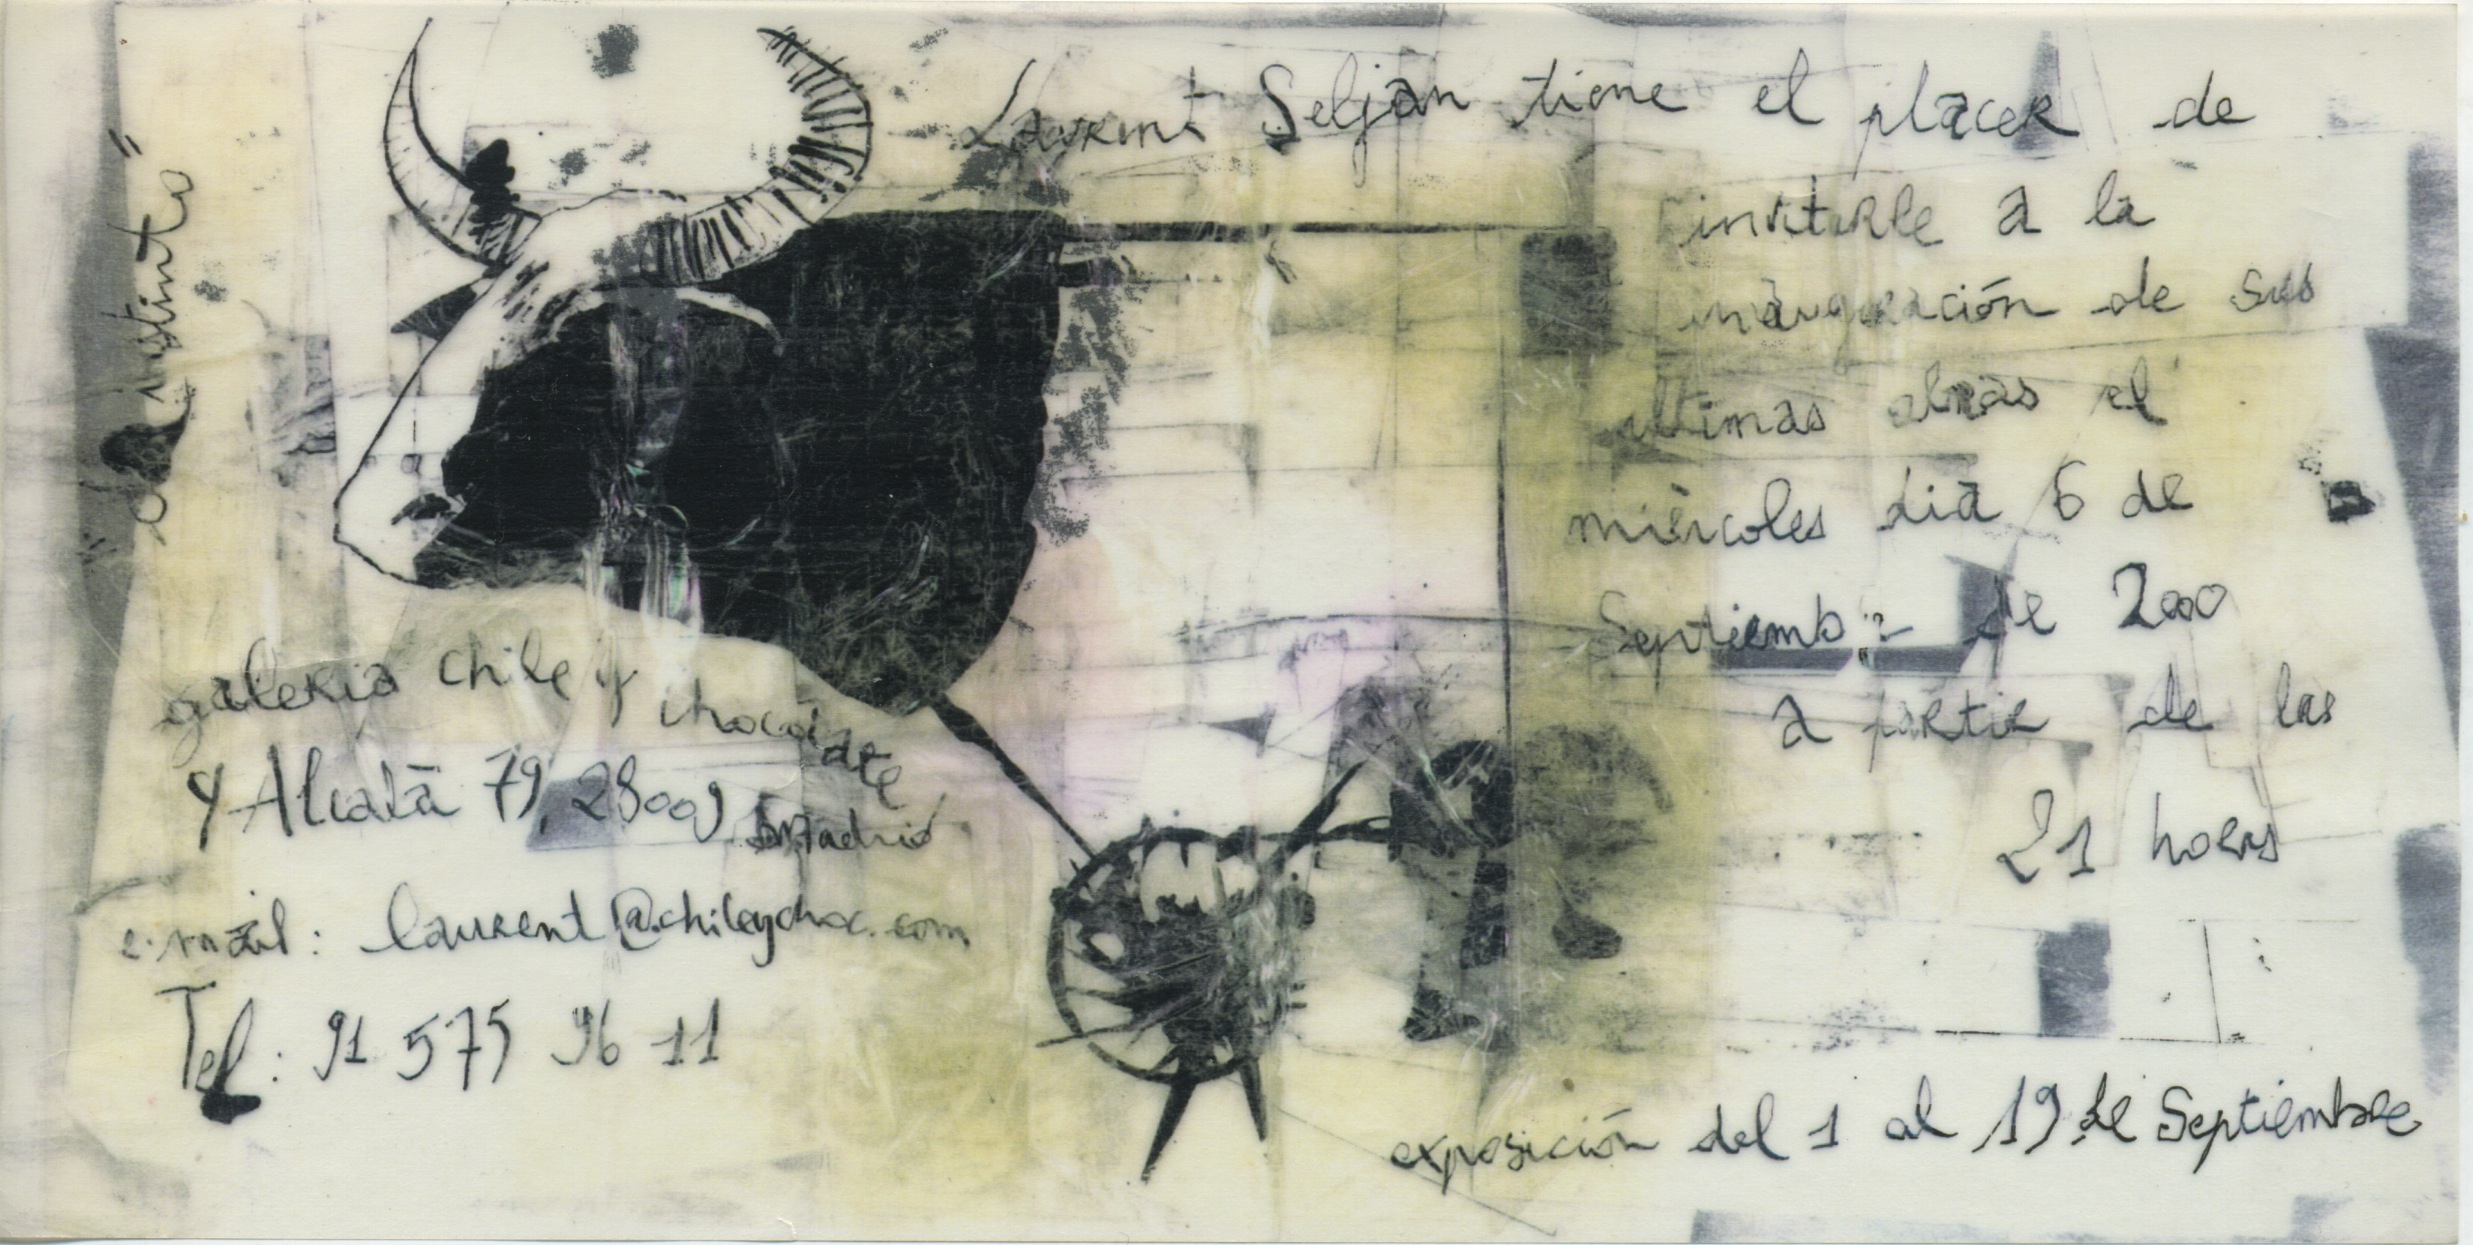 Laurent Seljan tiene el placer de
invitarle a la
inauguración de sus
ultimas obras el
miércoles dia 6 de
Septiembre de 2000
a partir de las
21 horas
exposición del 1 al 19 de Septiembre
"el instinto"
galeria chile y chocolate
C/ Alcalá 79, 28009 Madrid
e.mail: laurent@chileychoc.com
Tel: 91 575 96 11